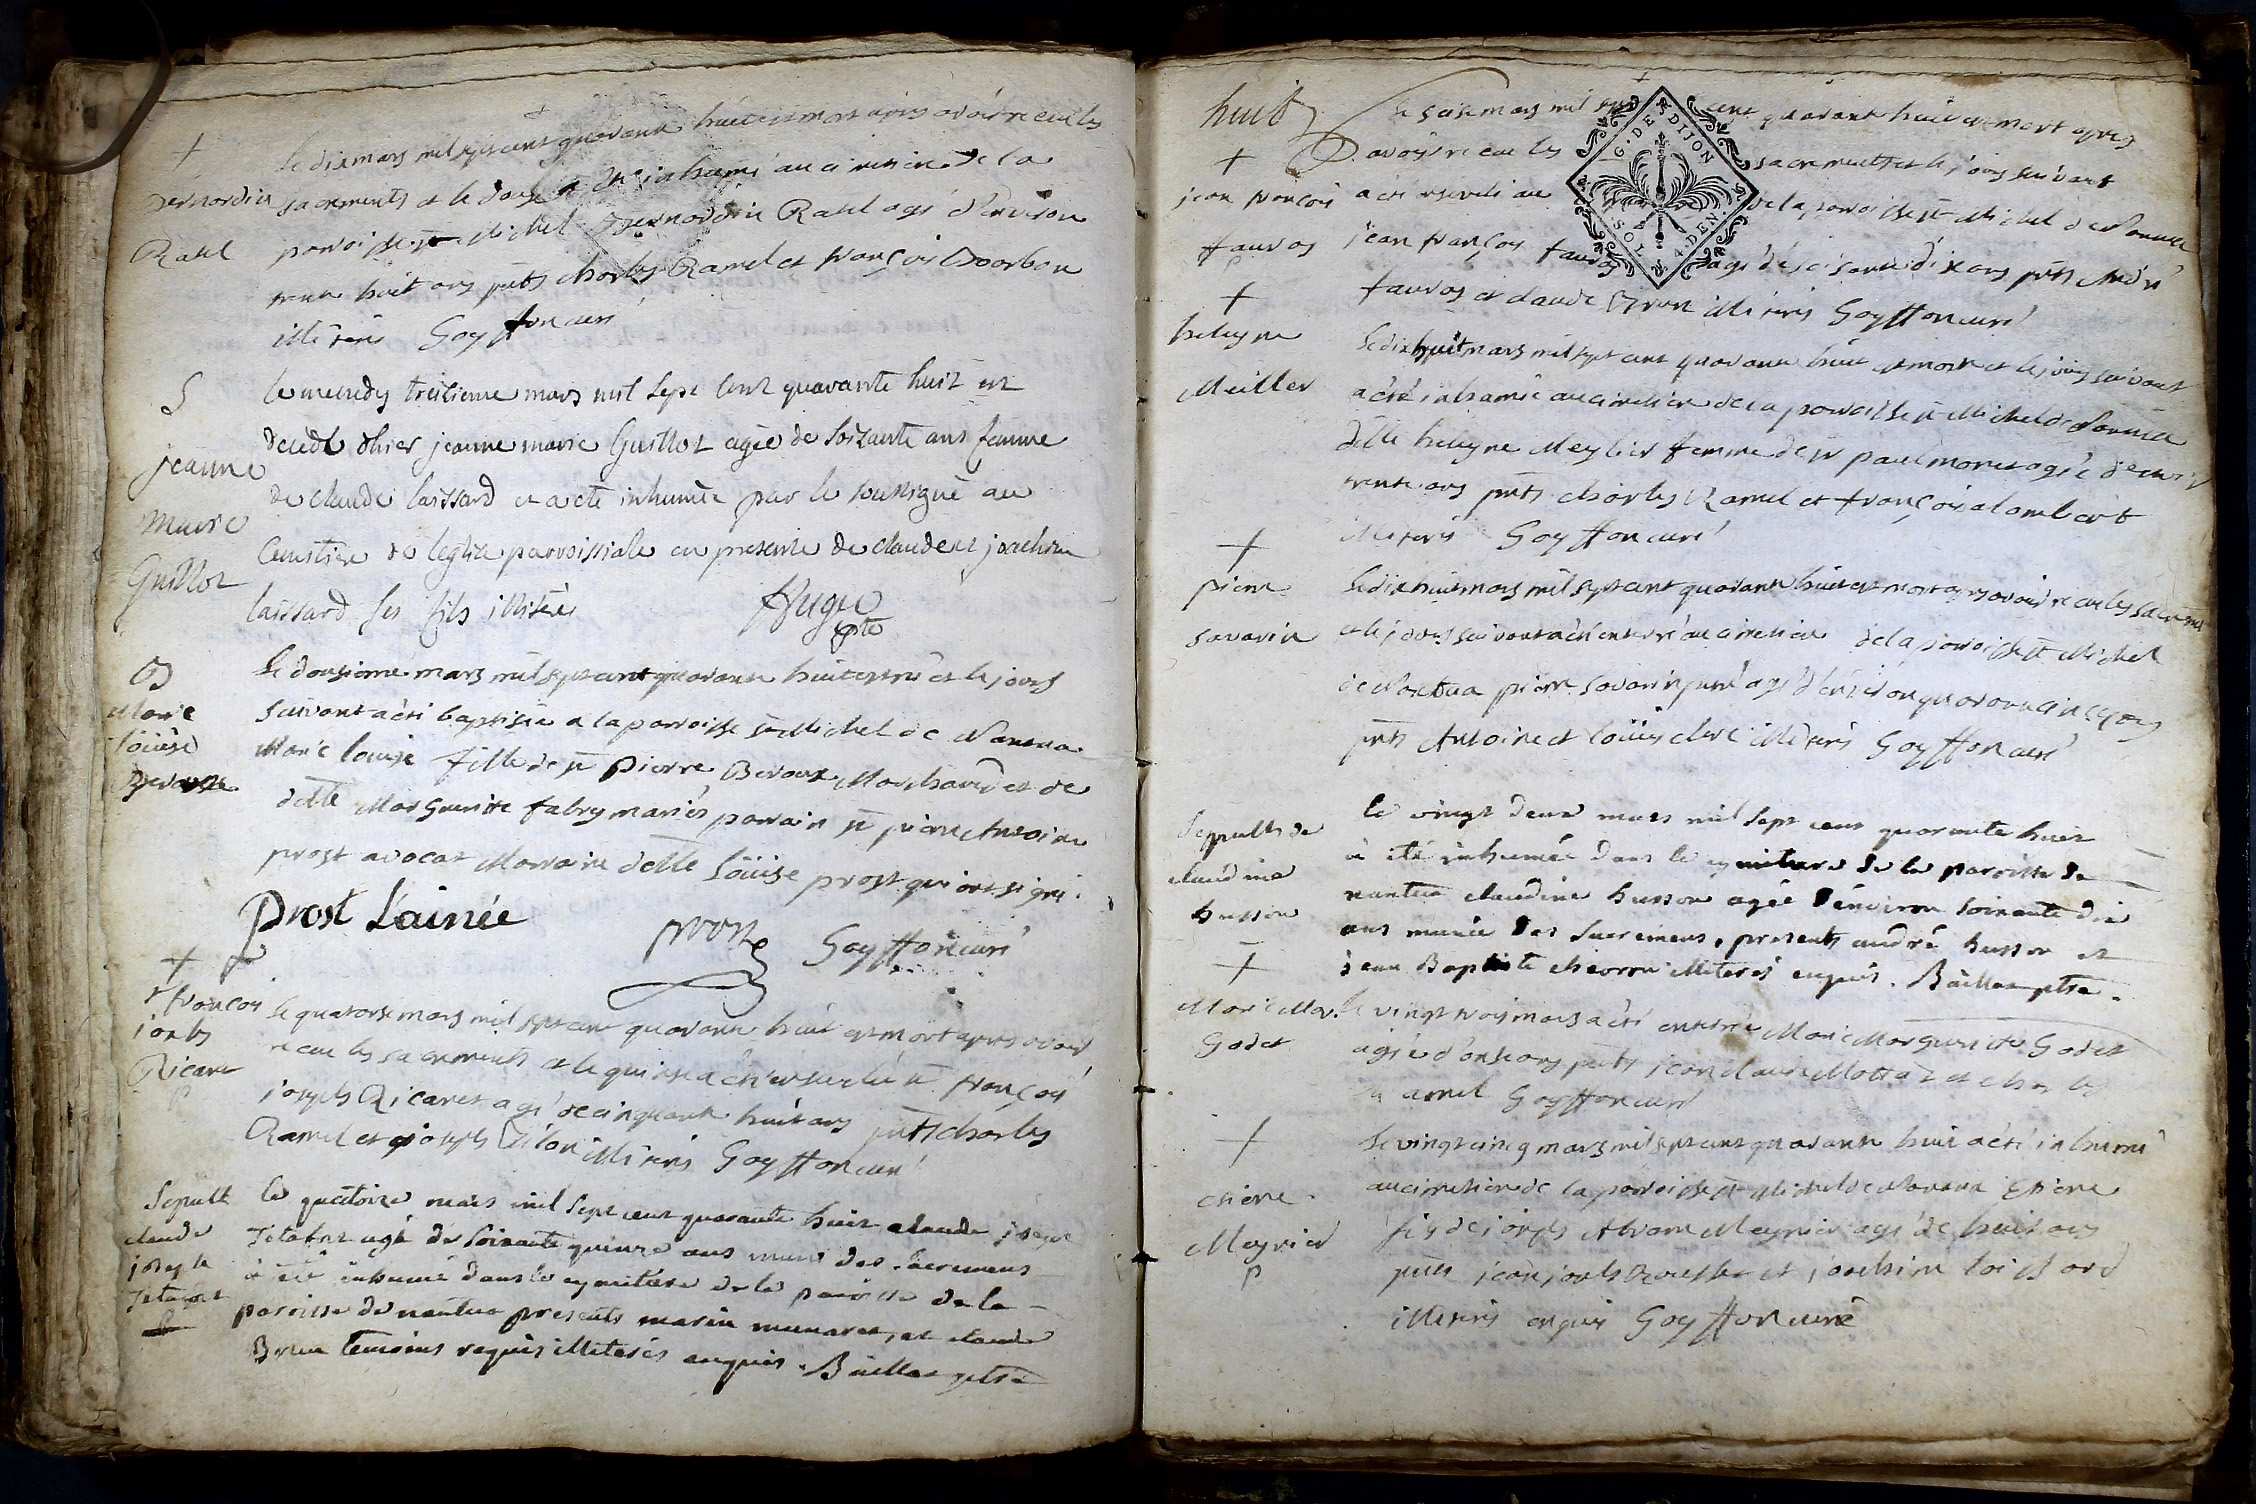 +
Bernardin
Ratel
Le dix mars mil sept cent quarante huit est mort apres avoir receu les
sacrements et le onze a été inhumé au cimetiere de la
paroisse st Michel Bernardin Ratel agé d'environ
trente huit ans pnts charles Ramel et françois
illiterés Goyffon curé
S
jeanne
Marie
Guillot
le mecredy treizieme mars mil sept cent quarante huit est
decedé d'hier jeanne marie Guillot agée de soixante ans femme
de claude laissard et a eté inhumée par le soussigné au
Cemetiere de leglise parroissiale en presence de claude et joachim
laissard ses fils illiterés Hugue
ptre
B
Marie
loüise
Beroux
Le dousieme mars mil sept cent quarante huit est née et le jours
suivant a été baptisée a la paroisse st Michel de Nantua
Marie louise fille de sr Pierre Beroux Marchand et de
delle Marguerite fabry mariés parrain sr pierre Antoine
prost avocat Marraine delle loüise prost qui ont signé.
Prost L'ainée
prost
Goyffon curé
+
françois
joseph
Ricanet
p
Le quatorse mars mil sept cent quarante huit est mort apres avoir
receu les sacrements et le quinse a été enseveli sr françois
joseph Ricanet agé de cinquante huit ans pnts charles
Ramel et joseph illiterés Goyffon curé
Sepult
claude
joseph
le quatorze mars mil sept cent quarante huit claude joseph
agé de soixante quinze ans muni des sacremens
à été inhumé dans le cymetiere de la paroisse de la
paroisse de nantua presents marin munaret, et claude
Brun temoins requis illiterés enquis. Baillat ptre
huit
+
jean françois
Fauras
p
Le seise mars mil sept cent quarant huit est mort apres
avoir receu les sacrements et le jour suivant
a été enseveli au de la paroisse st Michel de Nantua
jean françois fauras agé de soisante dix ans pnts André
fauras et claude illiterés Goyffon curé
G. DE DIJON
SOL 4. DEN.
+
heleyne
Meillier
Le dix huit mars mil sept cent quarante huit est morte et le jour suivant
a été inhumée au cimetiere de la paroisse st Michel de Nantua
delle heleyne Meylier femme de sr paul monet agée d'environ
trente ans pnts charles Ramel et françois alombert
illiterés Goyffon curé
+
pierre
savarin
Le dix huit mars mil sept cent quarante huit est mort apres avoir receu les sacrements
et le jour suivant a été enterré au cimetiere de la paroisse st Michel
de Nantua pierre savarin agé d'environ quarante cinq ans
pnts Antoine et loüis clerc illiterés Goyffon curé
Sepult de
claudine
husson
le vingt deux mars mil sept cent quarante huit
à été inhumée dans le cymetiere de la paroisse de
nantua claudine husson agée d'environ soixante dix
ans munie des sacremens, presents andré husson et
jean Baptiste chevron illiterés enquis. Baillat ptre.
+
Marie Mar.
Godet
le vingt trois mars a été enterrée Marie Marguerite Godet
agée d'onse ans pnts jean claude Mottaz et charles
Ramel Goyffon curé
+
etiene
Meynier
p
Le vingt cinq mars mil sept cent quarante huit a été inhumé
au cimetiere de la paroisse st Michel de Nantua Etiene
fils de joseph Meynier agé de huit ans
pnts jean joseph et joachim loissard
illiterés enquis Goyffon curé